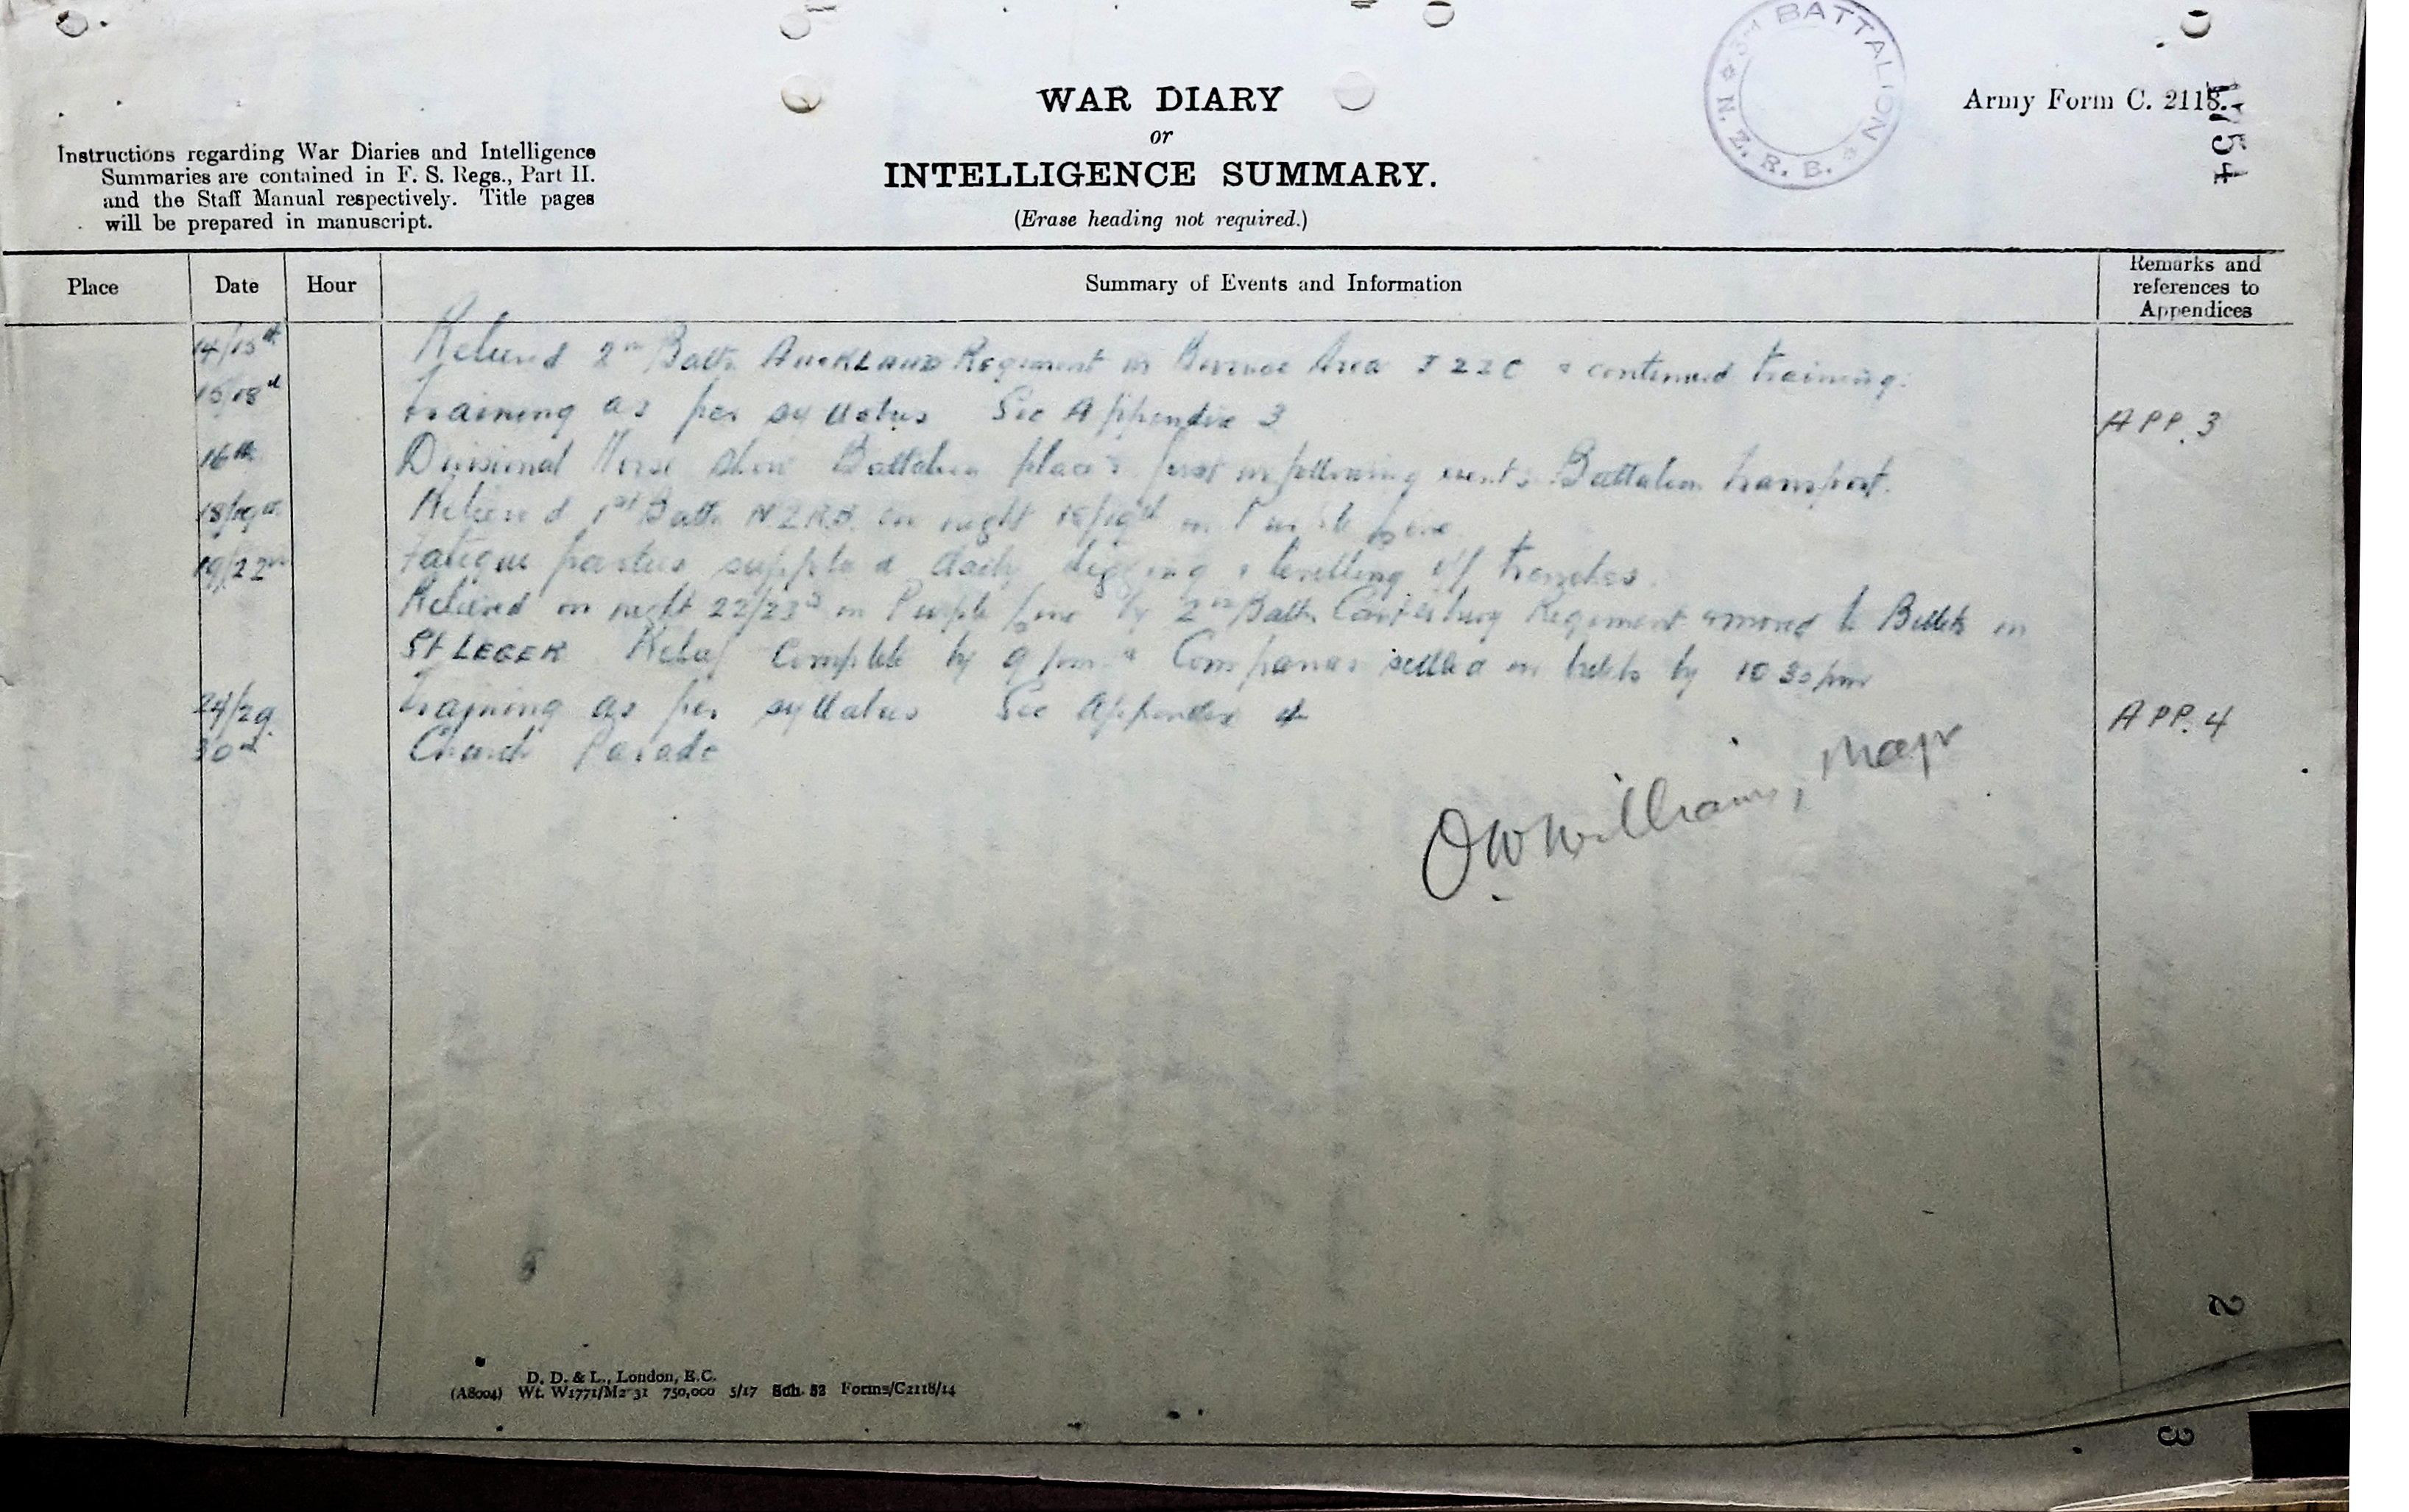 3rd BATTALION
* N. Z. R. B. *
WAR DIARY
or
INTELLIGENCE SUMMARY.
(Erase heading not required.)
Army Form C. 2118.
Instructions regarding War Diaries and Intelligence
Summaries are contained in F. S. Regs., Part II.
and the Staff Manual respectively. Title pages
will be prepared in manuscript.
Place Date Hour Summary of Events and Information Remarks and
references to
Appendices
14/15th Relieved 2nd Battn AUCKLAND Regiment in Area J 22 C & continued training.
15/18th Training as per syllabus See Appendix 3 APP. 3
16th Divisional Horse Show Battalion placed first in following events Battalion transport.
18/19th Relieved 1st Battn N.Z.R.B. on night 18/19th in Purple Line
19/22nd Fatigue parties supplied daily digging & levelling of trenches.
Relieved on night 22/23rd in Purple Line by 2nd Battn Canterbury Regiment & moved to Billets in
St LEGER Relief Complete by 9 pm & Companies settled in billets by 10 30 pm
24/29 Training as per syllabus See Appendix 4 APP. 4
30th Church Parade
O W Williams, Major
2
D. D. & L., London, E.C.
(A8004) Wt. W1771/M2 31 750,000 5/17 Sch. 52 Forms/C2118/14
3